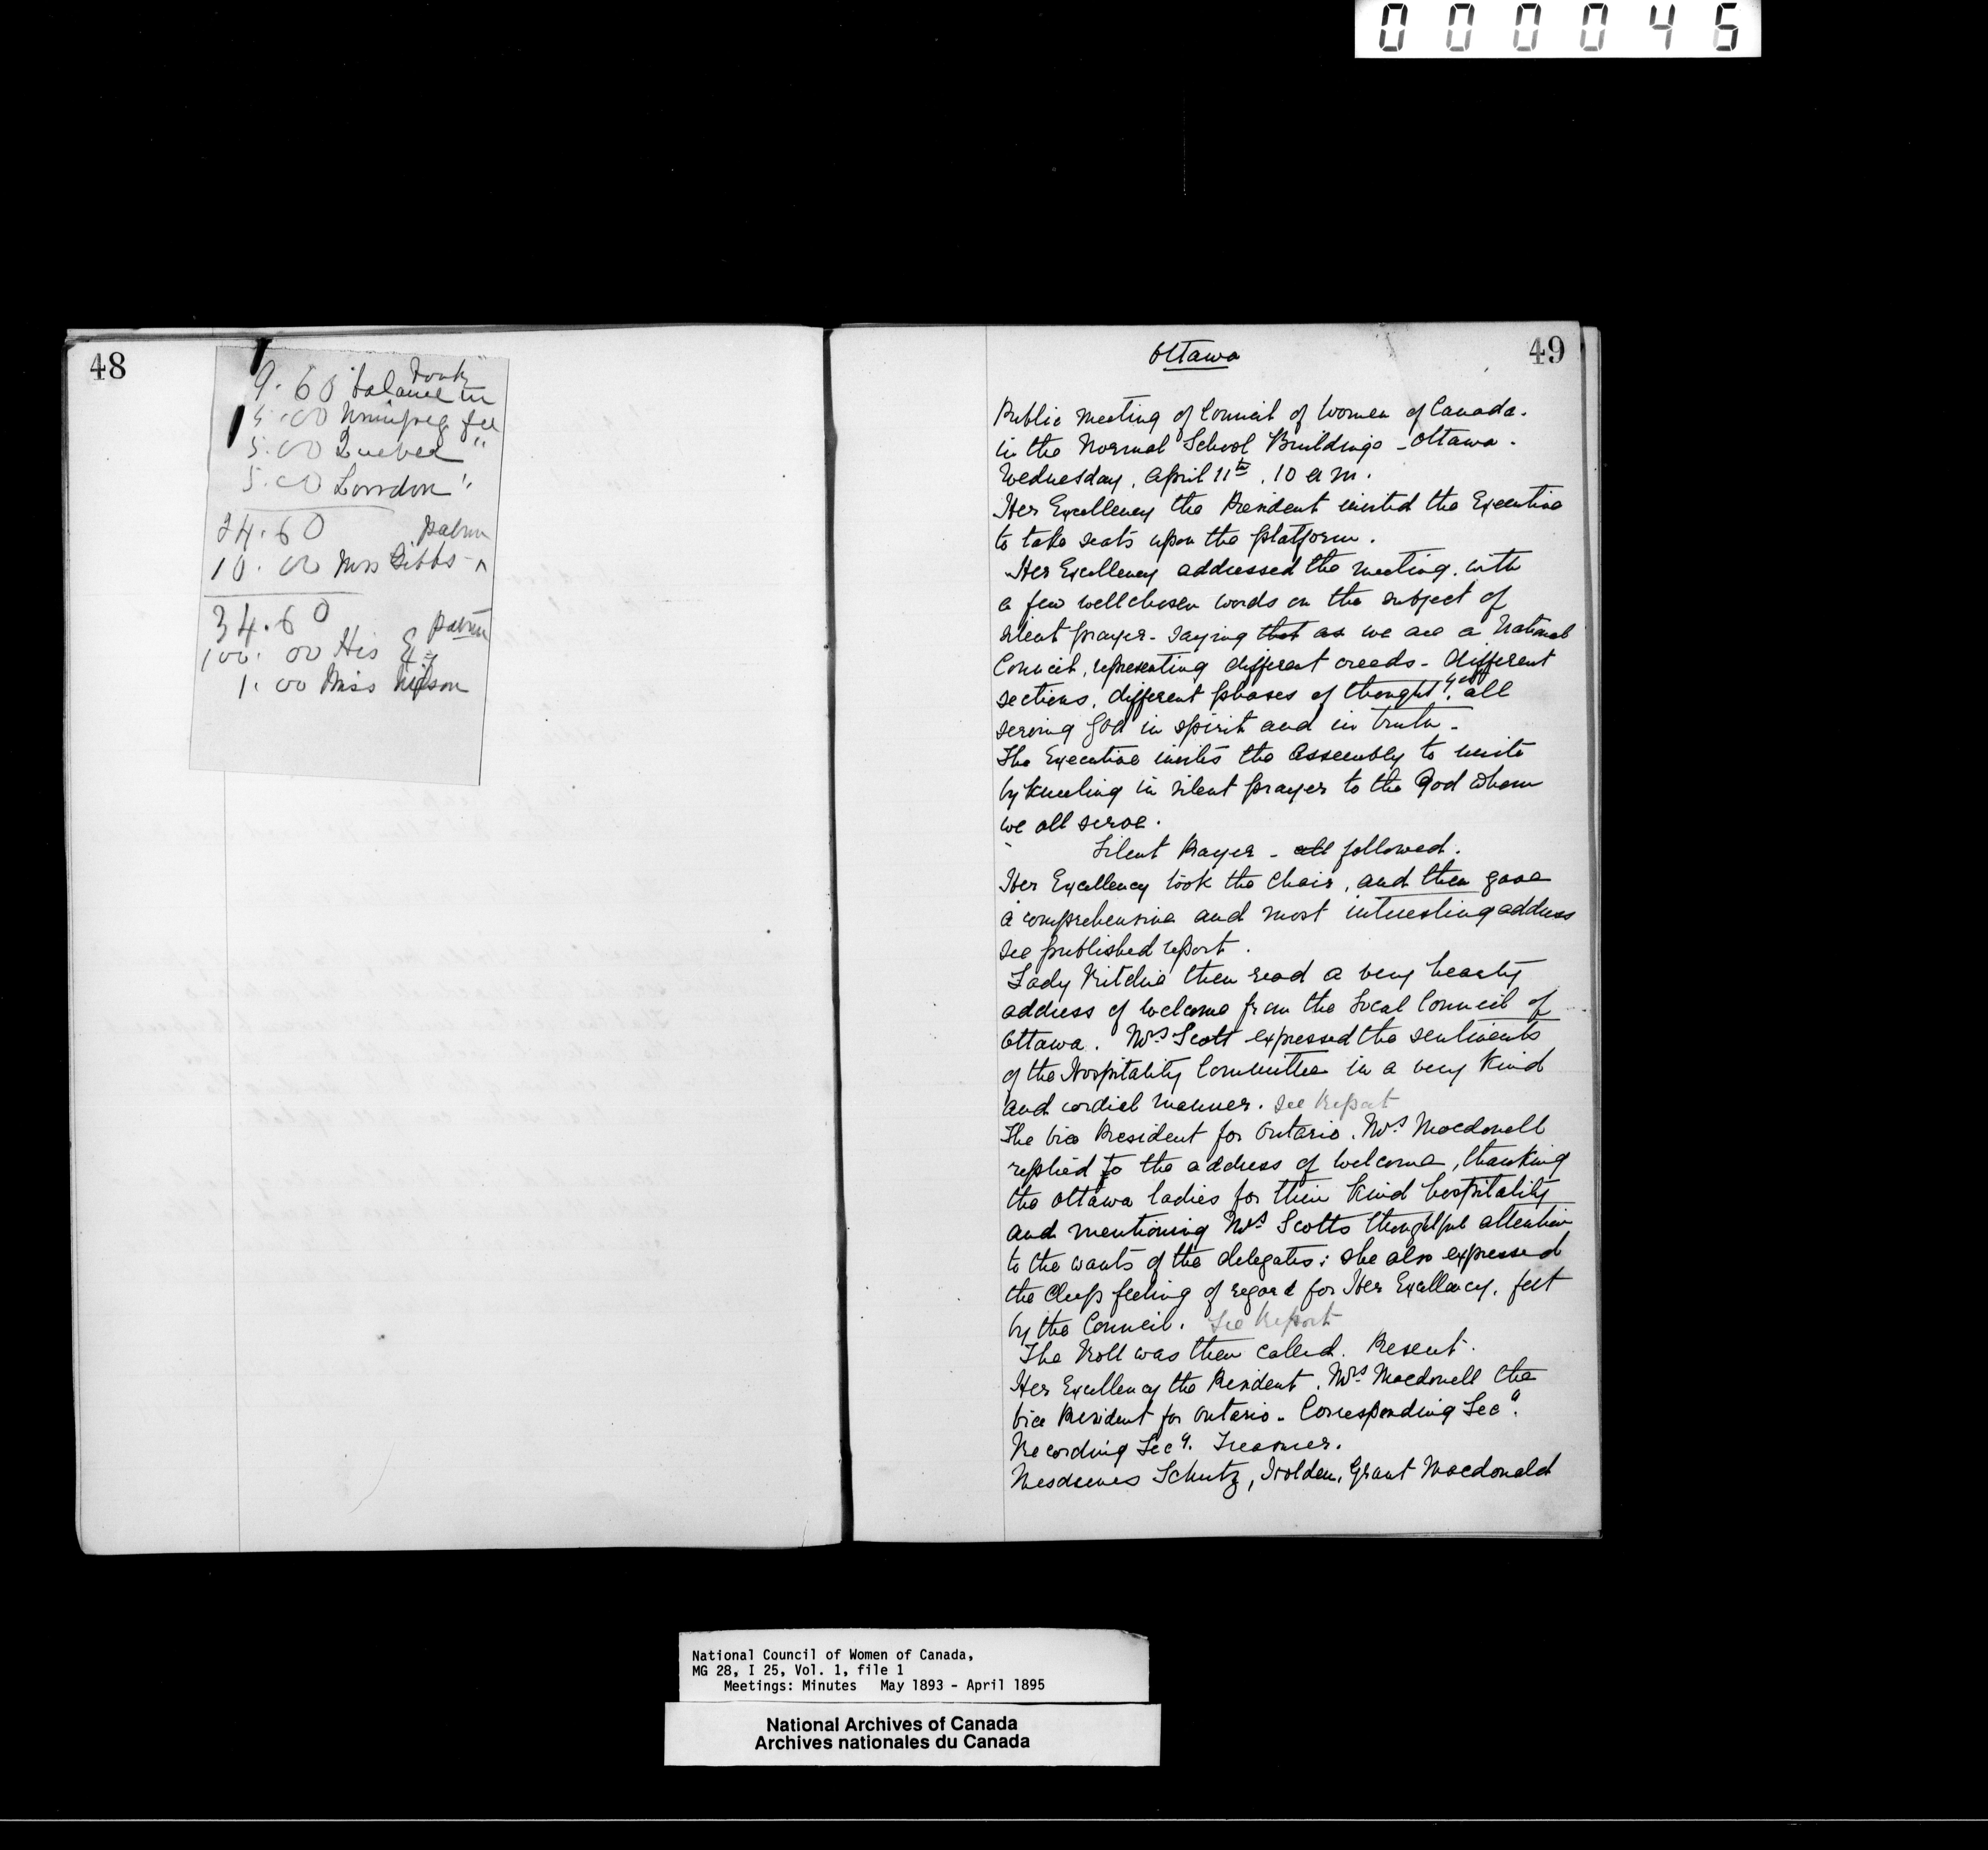 000045
48
9.60 balance in
bank
5.00 Winnipeg fee
5.00 Quebec "
5.00 London "
24.60
patron
10.00 Mrs Gibbs -
34.60
patron
100.00 His Ex
1.00 Miss Wilson
49
Ottawa
Public Meeting of Council of Women of Canada.
in the Normal School Buildings - Ottawa.
Wednesday, April 11th, 10 a m.
Her Excellency the President invited the Executive
to take seats upon the platform.
Her Excellency addressed the meeting, with
a few wellchosen words on the subject of
silent prayer - saying that as we are a National
Council, representing different creeds - different
sections, different phases of thought, yet all
serving God in spirit and in truth -
The Executive invites the Assembly to unite
by kneeling in silent prayer to the God whom
we all serve.
Silent Prayer - all followed.
Her Excellency took the Chair, and then gave
a comprehensive and most interesting address
see published report.
Lady Ritchie then read a very hearty
address of welcome from the Local Council of
Ottawa. Mrs Scott expressed the sentiments
of the Hospitality Committee in a very kind
and cordial manner. See Report
The Vice President for Ontario, Mrs Macdonell
replied to the address of welcome, thanking
the Ottawa ladies for their kind hospitality
and mentioning Mrs Scotts thoughtful attention
to the wants of the delegates; she also expressed
the deep feeling of regard for Her Excellency, felt
by the Council. See Report
The Roll was then called. Present.
Her Excellency the President, Mrs Macdonell the
Vice President for Ontario - Corresponding Secy.
Recording Secy. Treasurer.
Mesdames Schutz, Holden, Grant Macdonald
National Council of Women of Canada,
MG 28, I 25, Vol. 1, file 1
Meetings: Minutes May 1893 - April 1895
National Archives of Canada
Archives nationales du Canada